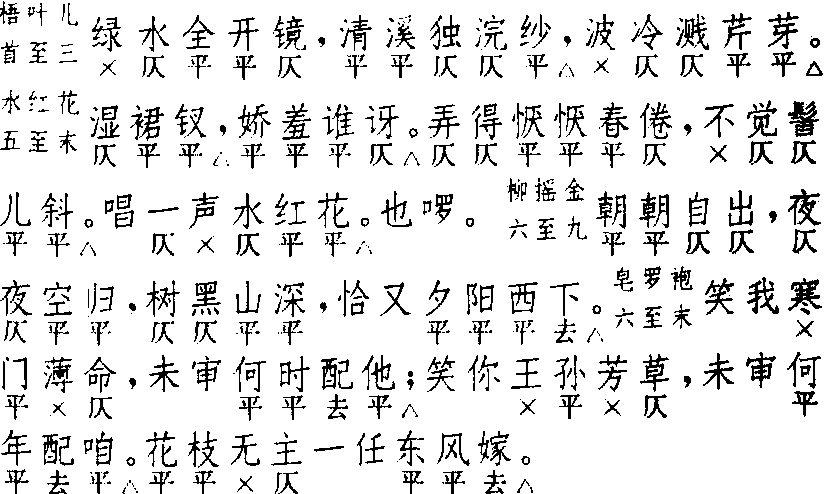 梧叶儿 绿水全开镜，清溪独浣纱，波冷溅芹芽。
首至三 × 仄 平 平 仄 平 平 仄 仄 平 △ × 仄 仄 平 平 △
水红花 湿裙钗，娇羞谁讶。弄得恹恹春倦，不觉髻
五至末 仄 平 平 △ 平 平 平 仄 △ 仄 仄 平 平 平 仄 × 仄 仄
儿斜。唱一声水红花。也啰。 柳摇金 朝朝自出，夜
平 平 △ 仄 × 仄 平 平 △ 六至九 平 平 仄 仄 仄
夜空归，树黑山深，恰又夕阳西下。 皂罗袍 笑我寒
仄 平 平 仄 仄 平 平 平 平 平 去 △ 六至末 ×
门薄命，未审何时配他；笑你王孙芳草，未审何
平 × 仄 平 平 去 平 △ × 平 × 仄 平
年配咱。花枝无主一任东风嫁。
平 去 平 △ 平 平 × 仄 平 平 去 △